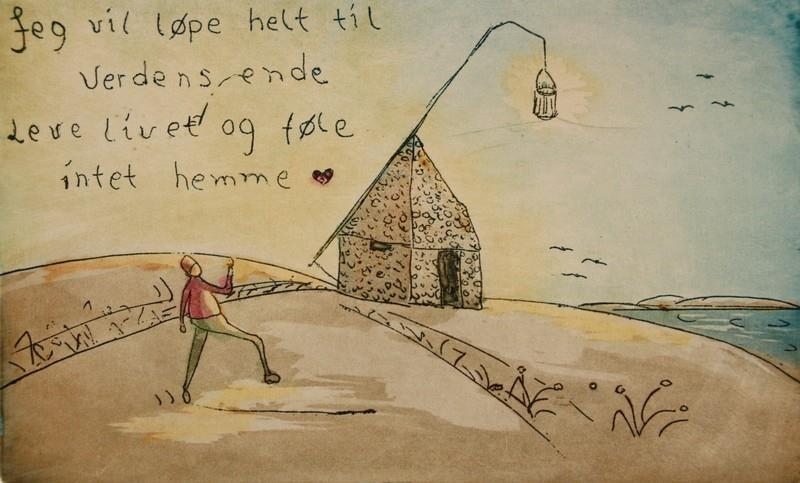 Jeg vil løpe helt til
Verdens ende
Leve livet og føle
intet hemme